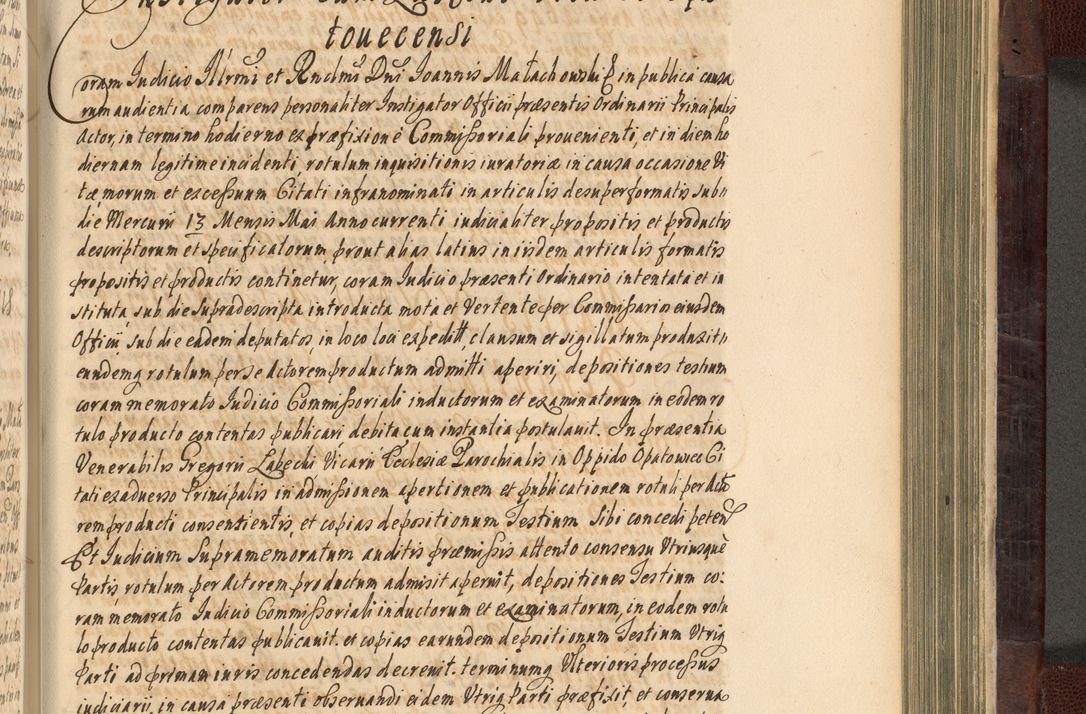 touecensi
Coram Iudicio Illrmi et Rndmi Dni Ioannis Małachowski E in publica causa
rum audientia comparens personaliter Instigator Officii præsentis Ordinarii Principalis
Actor, in termino hodierno ex præfixione Commissoriali prouenienti, et in diem ho
diernam legitime incidenti, rotulum inquisitionis iuratoriæ in causa occasione Vi
tæ morum et excessuum Citati infranominati in articulis desuper formatis sub
die Mercurii 13 Mensis Mai Anno currenti iudicialiter propositis et productis
descriptorum et specificatorum prout alias latius in iisdem articulis formatis
propositis et productis continetur, coram Iudicio præsenti Ordinario intentata et in
stituta, sub die Supradescripta introducta mota et Vertente per Commissarios eiusdem
Officii, sub die eadem deputatos, in loco loci expeditt clausum et sigillatum produxit
eundemq rotulum per se Actorem productum admitti aperiri, depositiones testium
coram memorato Iudicio Commissoriali inductorum et examinatorum in eodem ro
tulo producto contentas publicari debita cum instantia postulauit. In præsentia
Venerabilis Gregorii Łabęcki Vicarii Ecclesiæ Parochialis in Oppido Opatowice Ci
tati ex aduerso Principalis in admissionem apertionem et publicationem rotuli per Acto
rem producti consentientis, et copias depositionum Testium Sibi concedi peten
Et Iudicium Supramemoratum auditis præmissis attento consensu Utriusque
Partis rotulum per Actorem productum admisit aperuit, depositiones Testium co:
ram memorato Iudicio Commissoriali inductorum et examinatorum, in eodem rotu
lo producto contentas publicauit. et copias earundem depositionum Testium Utriq
Parti ad primam iuris concedendas decreuit. terminumq Ulterioris processus
iudiciarii, in causa præsenti obseruandi eidem Utriq Parti præfixit, et conserua